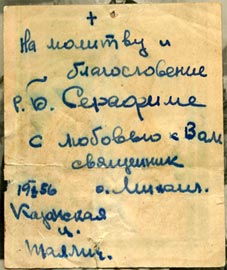 +
На молитву и
благословение
р. Б. Серафиме
с любовью к Вам
священник
о. Михаил.
Казанская
ц.
Таллин.